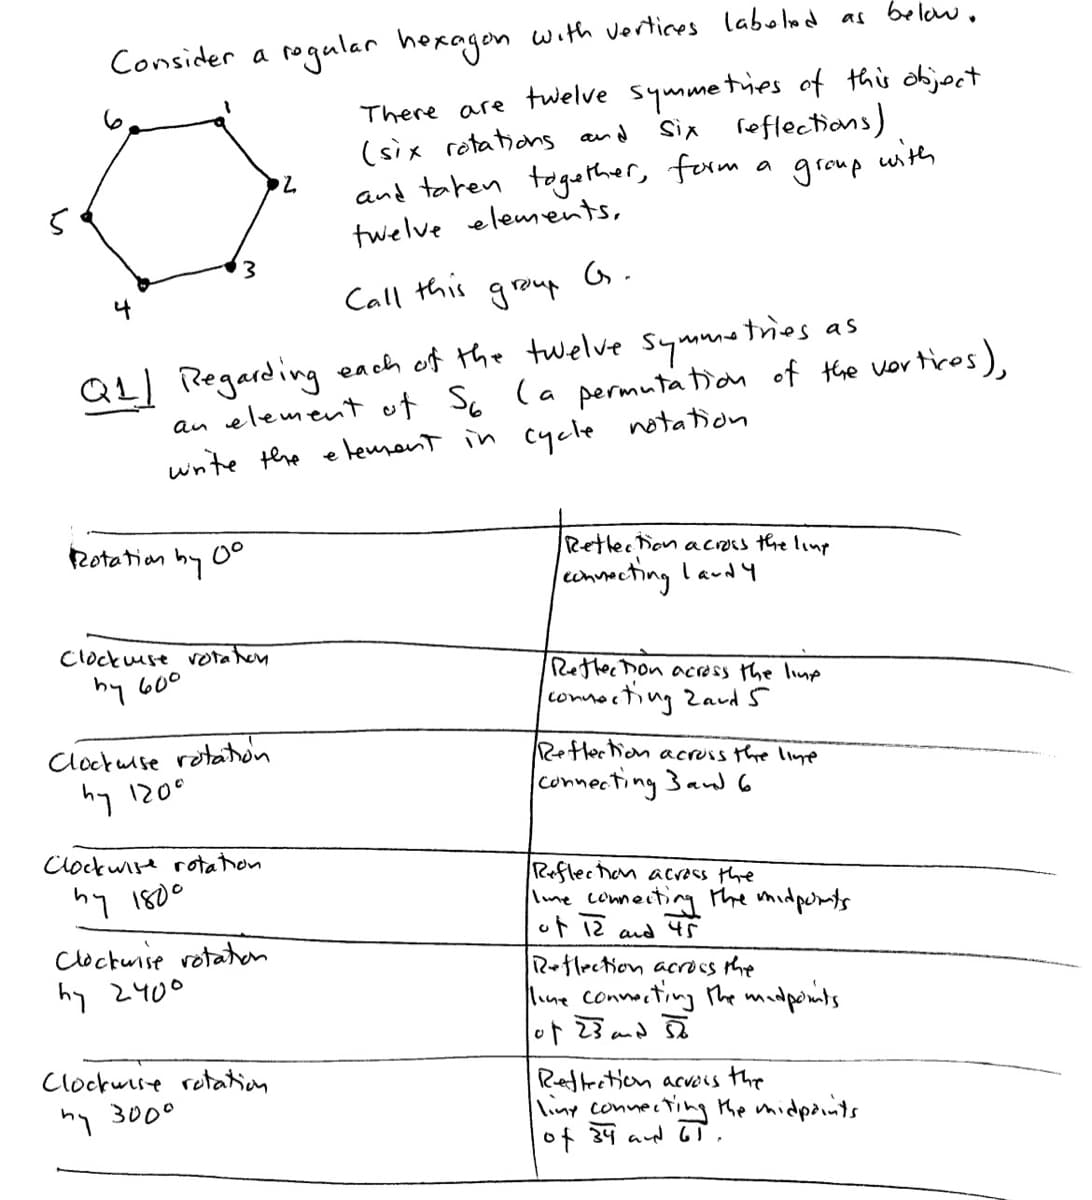 Consider a regular hexagon with vertices labeled as below.
6
1
2
3
4
5
There are twelve symmetries of this object
(six rotations and six reflections)
and taken together, form a group with
twelve elements.
Call this group G.
Q1] Regarding each of the twelve symmetries as
an element of S6 (a permutation of the vertices),
write the element in cycle notation
Rotation by 0°
Reflection across the line
connecting 1 and 4
Clockwise rotation
by 60°
Reflection across the line
connecting 2 and 5
Clockwise rotation
by 120°
Reflection across the line
connecting 3 and 6
Clockwise rotation
by 180°
Reflection across the
line connecting the midpoints
of 12 and 45
Clockwise rotation
by 240°
Reflection across the
line connecting the midpoints
of 23 and 56
Clockwise rotation
by 300°
Reflection across the
line connecting the midpoints
of 34 and 61.